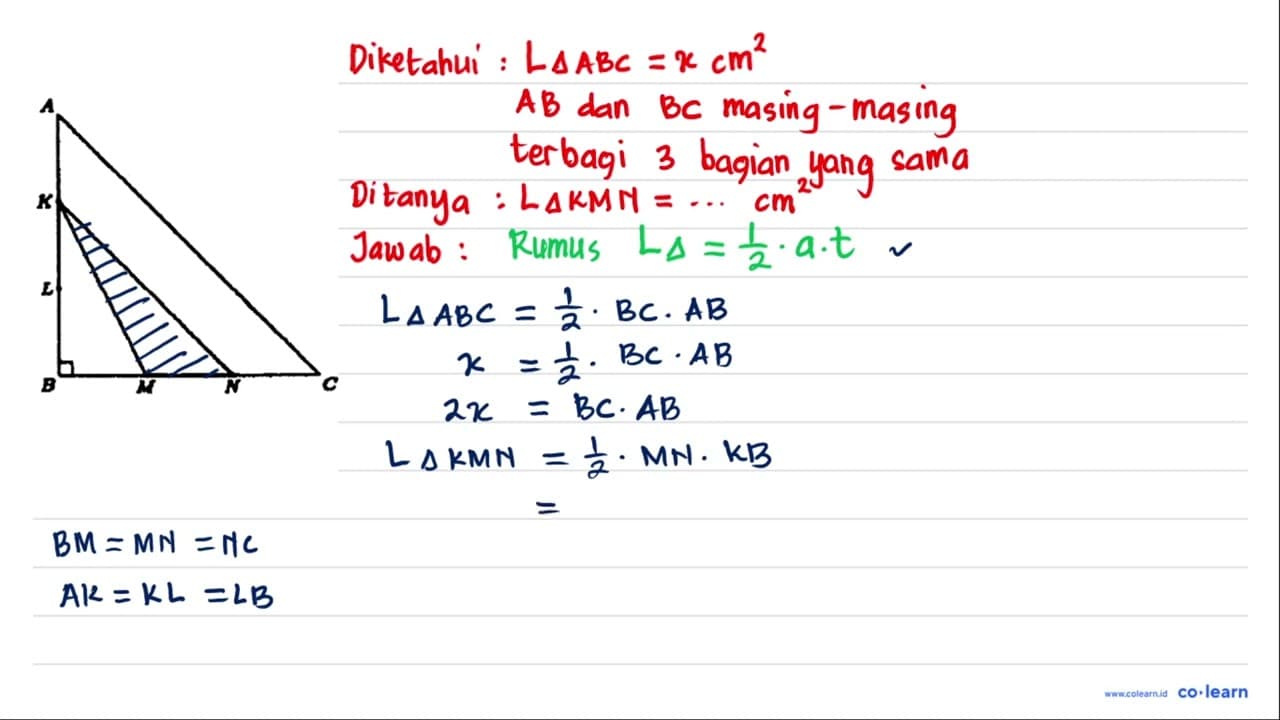 Diketahui : L∆ABC = x cm²
AB dan BC masing-masing
terbagi 3 bagian yang sama
Ditanya : L∆KMN = ... cm²
Jawab : Rumus L∆ = 1/2 · a.t ✓
L∆ABC = 1/2 · BC. AB
x = 1/2 · BC · AB
2x = BC. AB
L∆KMN = 1/2 · MN. KB
=
A
K
L
B M N C
BM = MN = NC
AK = KL = LB
www.colearn.id co·learn